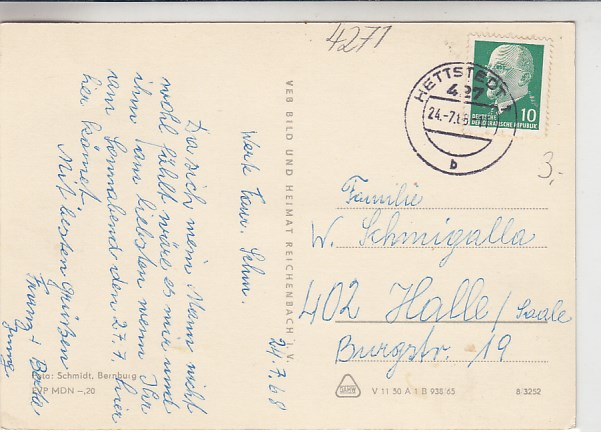 4271
HETTSTEDT 1
427
24.-7.68
b
10
DEUTSCHE
DEMOKRATISCHE REPUBLIK
3,-
24.7.68
Da sich mein Mann nicht
wohl fühlt wäre es mir und
ihm am liebsten wenn Ihr
am Sonnabend den 27.7. hier
her kömmet.
Mit besten Grüßen
Familie
W. Schmigalla
402 Halle/Saale
Burgstr. 19
VEB BILD UND HEIMAT REICHENBACH I. V.
Foto: Schmidt, Bernburg
EVP MDN -,20
V 11 50 A 1 B 938/65
8/3252